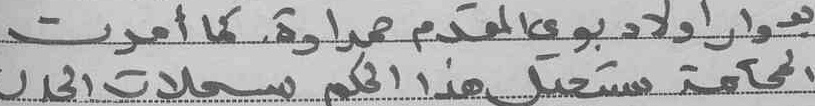 بدوار اولاد بوعي المقدم حمداوة. كما أمرت
المحكمة بتسجيل هذا الحكم بسجلات الحالة